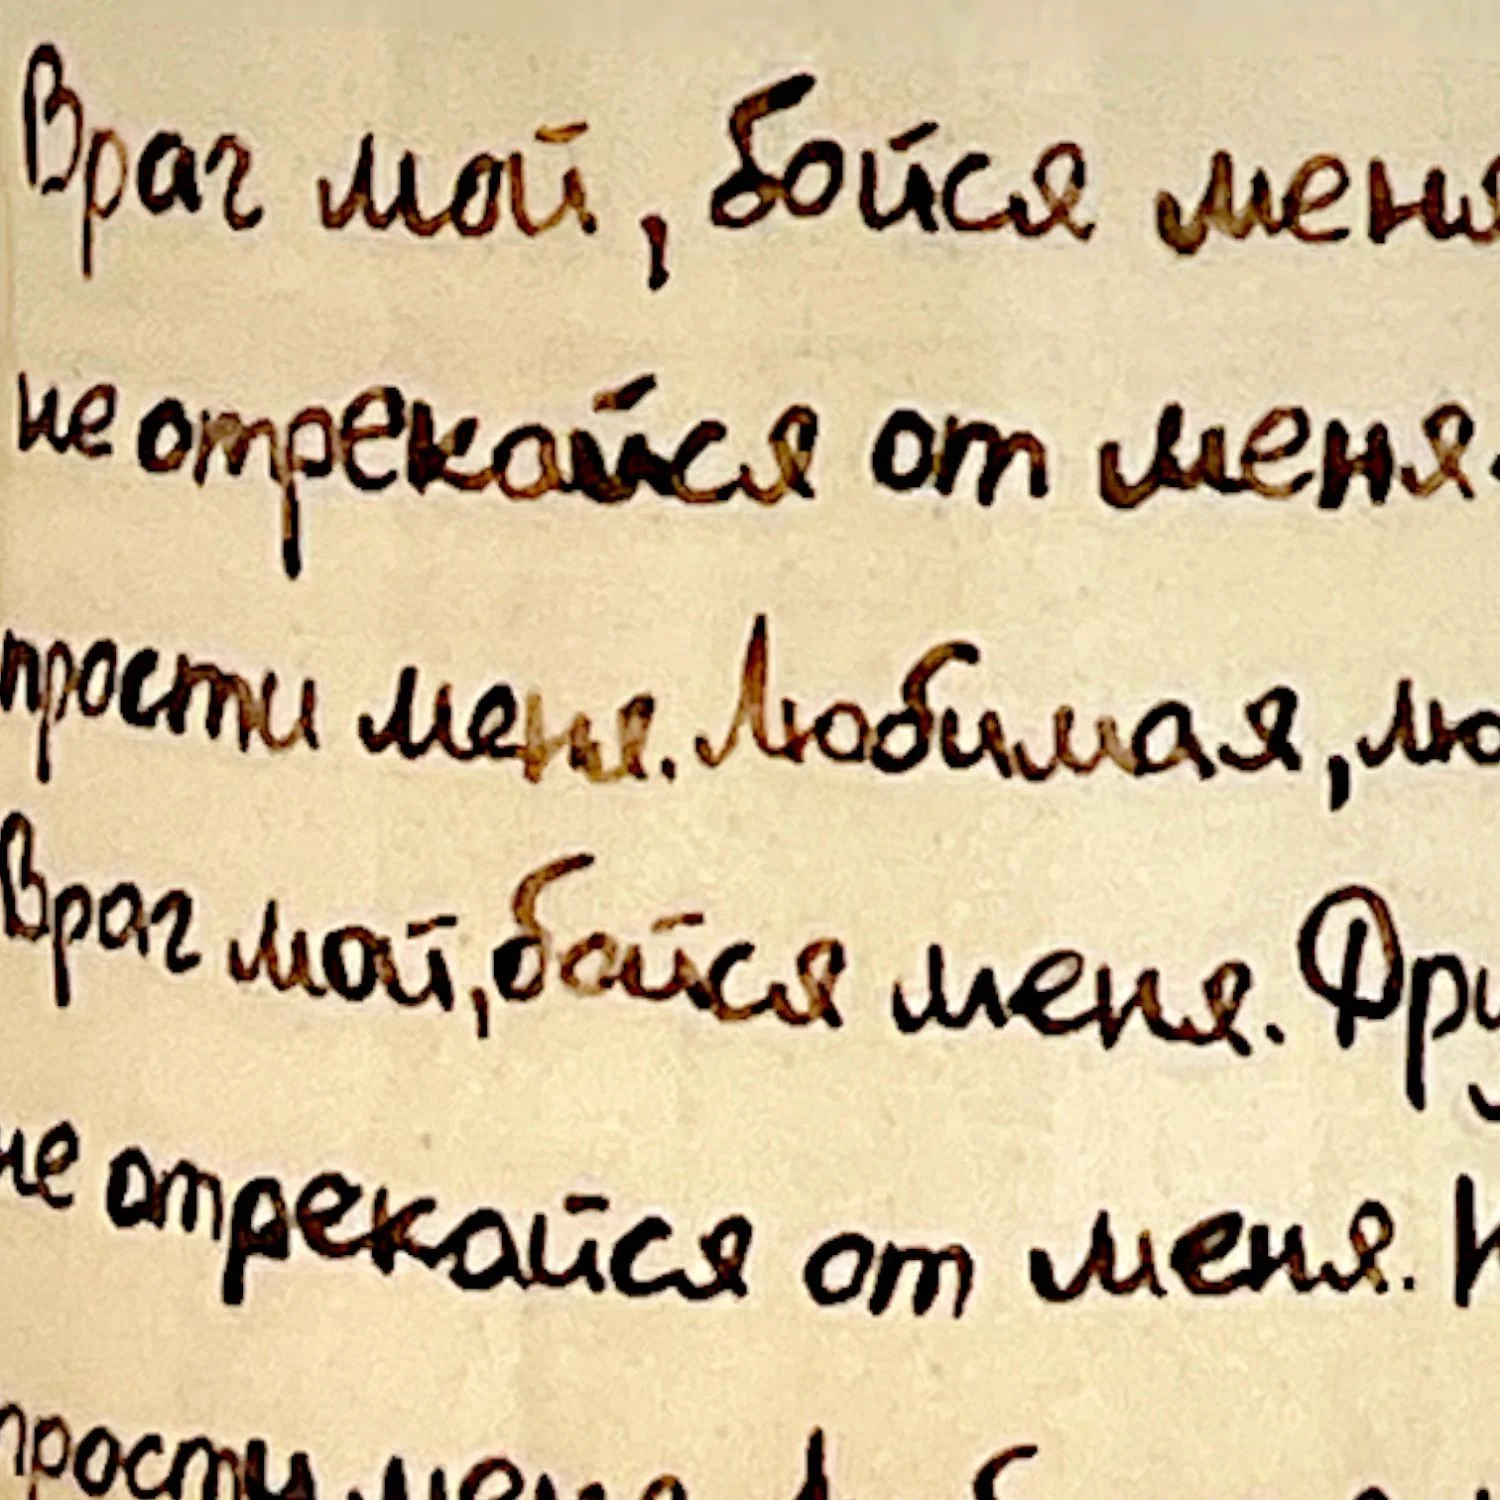 Враг мой, бойся меня
не отрекайся от меня.
прости меня. Любимая, лю
Враг мой, бойся меня. Дру
не отрекайся от меня.
прости меня